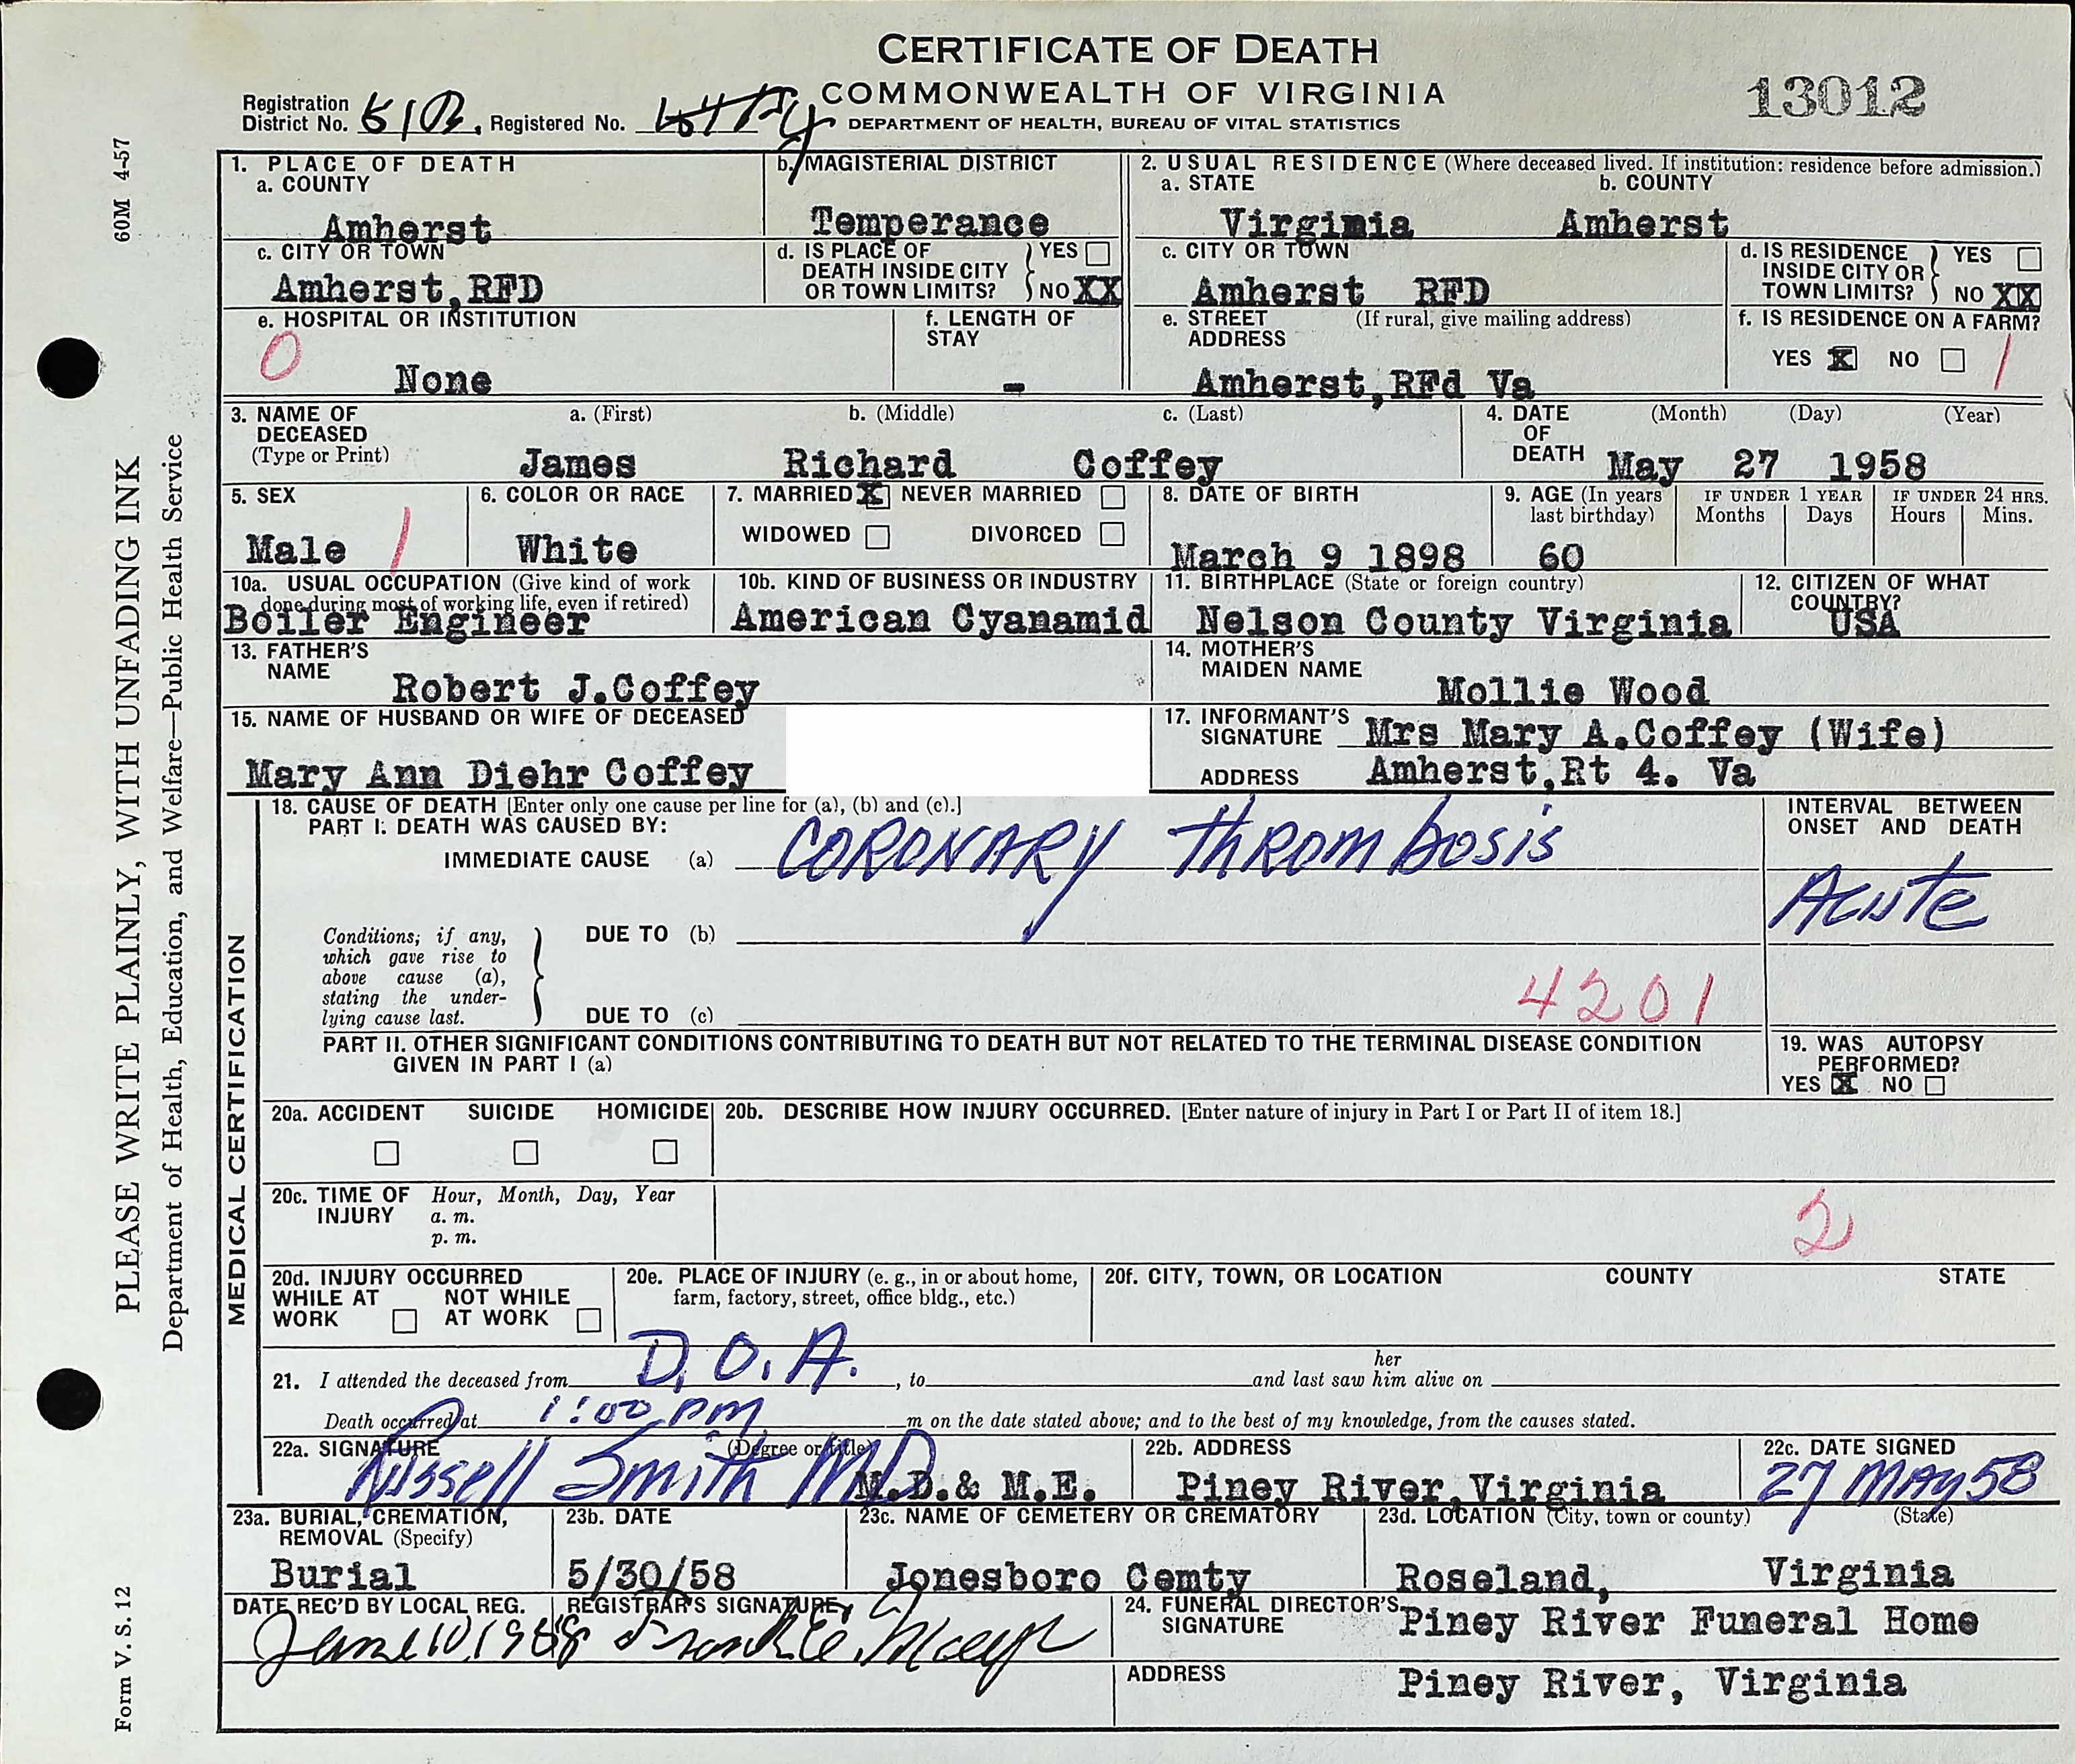 CERTIFICATE OF DEATH
COMMONWEALTH OF VIRGINIA
DEPARTMENT OF HEALTH, BUREAU OF VITAL STATISTICS
13012
Registration District No. Registered No.
60M 4-57
PLEASE WRITE PLAINLY, WITH UNFADING INK
Department of Health, Education, and Welfare—Public Health Service
Form V. S. 12
1. PLACE OF DEATH
a. COUNTY
Amherst
b. MAGISTERIAL DISTRICT
Temperance
2. USUAL RESIDENCE (Where deceased lived. If institution: residence before admission.)
a. STATE b. COUNTY
Virginia Amherst
c. CITY OR TOWN
Amherst,RFD
d. IS PLACE OF DEATH INSIDE CITY OR TOWN LIMITS? YES NO XX
c. CITY OR TOWN
Amherst RFD
d. IS RESIDENCE INSIDE CITY OR TOWN LIMITS? YES NO XX
e. HOSPITAL OR INSTITUTION
0
None
f. LENGTH OF STAY
-
e. STREET ADDRESS (If rural, give mailing address)
Amherst,RFd Va
f. IS RESIDENCE ON A FARM?
YES X NO 1
3. NAME OF DECEASED (Type or Print)
a. (First) b. (Middle) c. (Last)
James Richard Coffey
4. DATE OF DEATH (Month) (Day) (Year)
May 27 1958
5. SEX
Male 1
6. COLOR OR RACE
White
7. MARRIED X NEVER MARRIED
WIDOWED DIVORCED
8. DATE OF BIRTH
March 9 1898
9. AGE (In years last birthday)
60
IF UNDER 1 YEAR
Months Days
IF UNDER 24 HRS.
Hours Mins.
10a. USUAL OCCUPATION (Give kind of work done during most of working life, even if retired)
Boiler Engineer
10b. KIND OF BUSINESS OR INDUSTRY
American Cyanamid
11. BIRTHPLACE (State or foreign country)
Nelson County Virginia
12. CITIZEN OF WHAT COUNTRY?
USA
13. FATHER'S NAME
Robert J.Coffey
14. MOTHER'S MAIDEN NAME
Mollie Wood
15. NAME OF HUSBAND OR WIFE OF DECEASED
Mary Ann Diehr Coffey
17. INFORMANT'S SIGNATURE Mrs Mary A.Coffey (Wife)
ADDRESS Amherst,Rt 4. Va
MEDICAL CERTIFICATION
18. CAUSE OF DEATH [Enter only one cause per line for (a), (b) and (c).]
PART I. DEATH WAS CAUSED BY:
IMMEDIATE CAUSE (a) CORONARY THROMBOSIS
INTERVAL BETWEEN ONSET AND DEATH
Acute
Conditions, if any, which gave rise to above cause (a), stating the underlying cause last.
DUE TO (b)
DUE TO (c)
4201
PART II. OTHER SIGNIFICANT CONDITIONS CONTRIBUTING TO DEATH BUT NOT RELATED TO THE TERMINAL DISEASE CONDITION
GIVEN IN PART I (a)
19. WAS AUTOPSY PERFORMED?
YES X NO
20a. ACCIDENT SUICIDE HOMICIDE
20b. DESCRIBE HOW INJURY OCCURRED. [Enter nature of injury in Part I or Part II of item 18.]
20c. TIME OF INJURY Hour, Month, Day, Year
a. m.
p. m.
2
20d. INJURY OCCURRED
WHILE AT WORK NOT WHILE AT WORK
20e. PLACE OF INJURY (e. g., in or about home, farm, factory, street, office bldg., etc.)
20f. CITY, TOWN, OR LOCATION COUNTY STATE
21. I attended the deceased from D.O.A., to and last saw her him alive on
Death occurred at 1:00 PM m on the date stated above; and to the best of my knowledge, from the causes stated.
22a. SIGNATURE (Degree or title)
Russell Smith MD M.D.& M.E.
22b. ADDRESS
Piney River,Virginia
22c. DATE SIGNED
27 MAY 58
23a. BURIAL, CREMATION, REMOVAL (Specify)
Burial
23b. DATE
5/30/58
23c. NAME OF CEMETERY OR CREMATORY
Jonesboro Cemty
23d. LOCATION (City, town or county) (State)
Roseland, Virginia
DATE REC'D BY LOCAL REG.
June 10, 1958
REGISTRAR'S SIGNATURE
24. FUNERAL DIRECTOR'S SIGNATURE
Piney River Funeral Home
ADDRESS
Piney River, Virginia